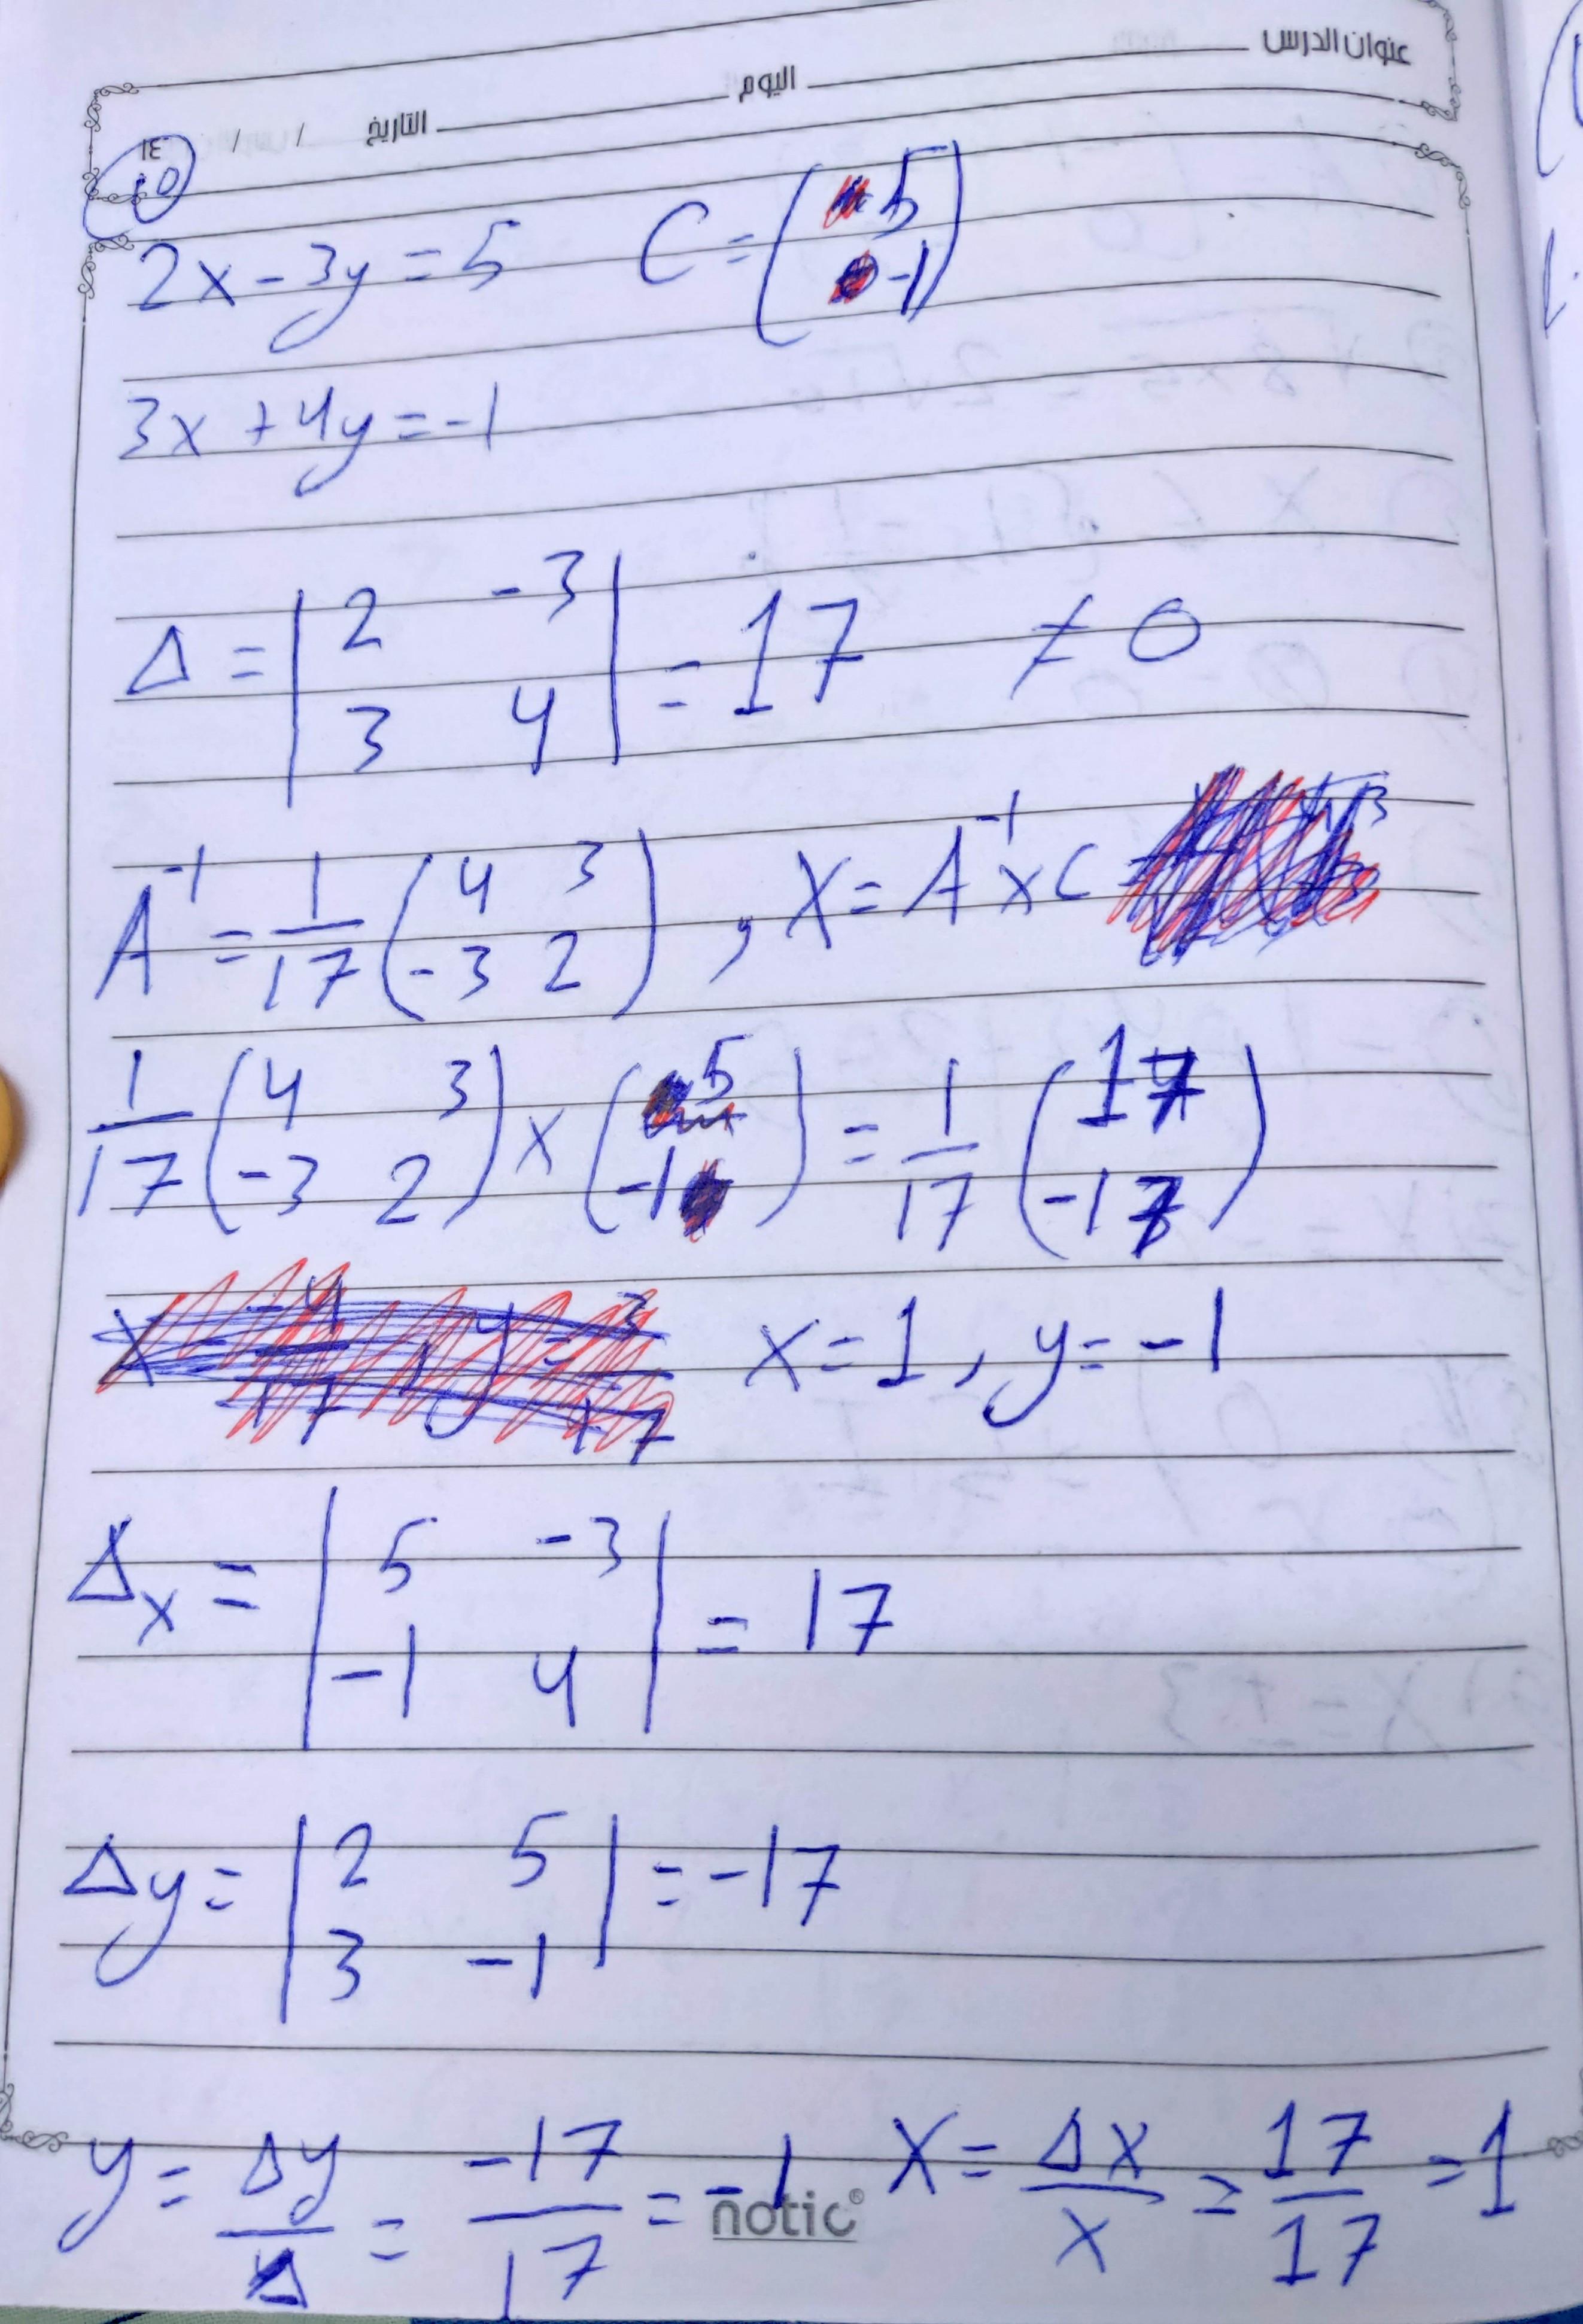 عنوان الدرس
اليوم
التاريخ / / ١٤
2x - 3y = 5 C = ( 5 -1 )
3x + 4y = -1
Δ = | 2 -3 | = 17 ≠ 0
| 3 4 |
A⁻¹ = 1/17 ( 4 3 ) , X = A⁻¹ x C
( -3 2 )
1/17 ( 4 3 ) x ( 5 ) = 1/17 ( 17 )
( -3 2 ) ( -1 ) ( -17 )
x = 1 , y = -1
Δx = | 5 -3 | = 17
| -1 4 |
Δy = | 2 5 | = -17
| 3 -1 |
y = Δy/Δ = -17/17 = -1 X = ΔX/X = 17/17 = 1
notic®